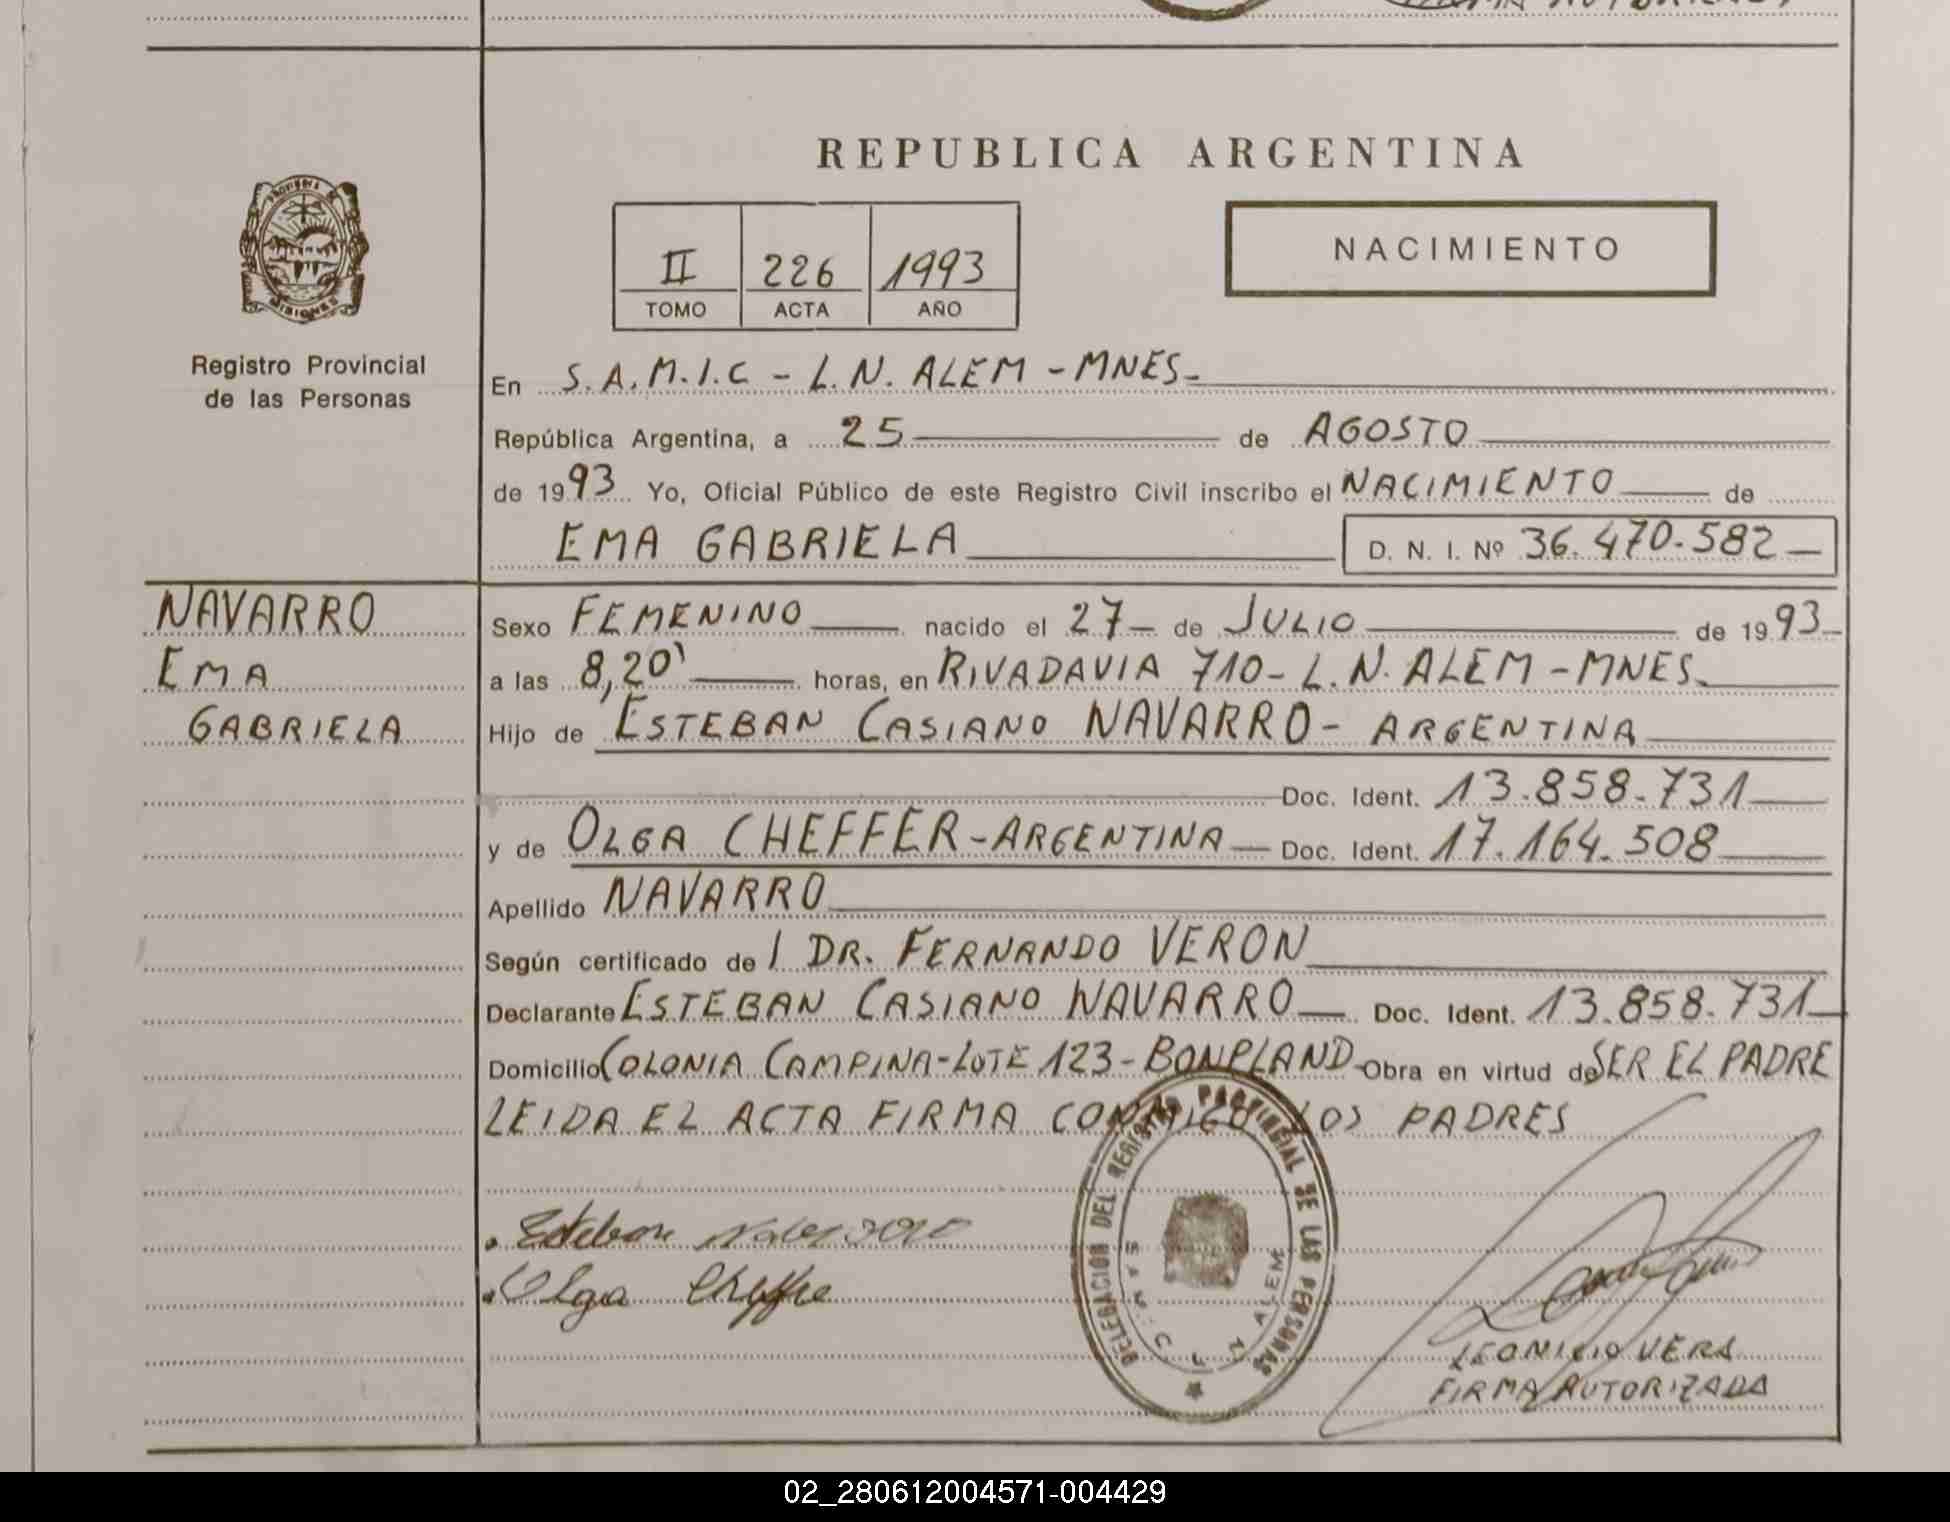 REPUBLICA ARGENTINA
NACIMIENTO
II 226 1993
TOMO ACTA AÑO
Registro Provincial
de las Personas
En S.A.M.I.C - L.N. ALEM - MNES.
República Argentina, a 25 de AGOSTO
de 1993 Yo, Oficial Público de este Registro Civil inscribo el NACIMIENTO de
EMA GABRIELA D. N. I. Nº 36.470.582
NAVARRO
EMA
GABRIELA
Sexo FEMENINO nacido el 27 de JULIO de 1993
a las 8,20' horas, en RIVADAVIA 710 - L.N. ALEM - MNES.
Hijo de ESTEBAN CASIANO NAVARRO - ARGENTINA
Doc. Ident. 13.858.731
y de OLGA CHEFFER - ARGENTINA Doc. Ident. 17.164.508
Apellido NAVARRO
Según certificado de l DR. FERNANDO VERON
Declarante ESTEBAN CASIANO NAVARRO Doc. Ident. 13.858.731
Domicilio COLONIA CAMPINA - LOTE 123 - BONPLAND Obra en virtud de SER EL PADRE
LEIDA EL ACTA FIRMA CONMIGO LOS PADRES
DELEGACIÓN DEL REGISTRO PROVINCIAL DE LAS PERSONAS
ALEM
Esteban
Olga
FIRMA AUTORIZADA
02_280612004571-004429